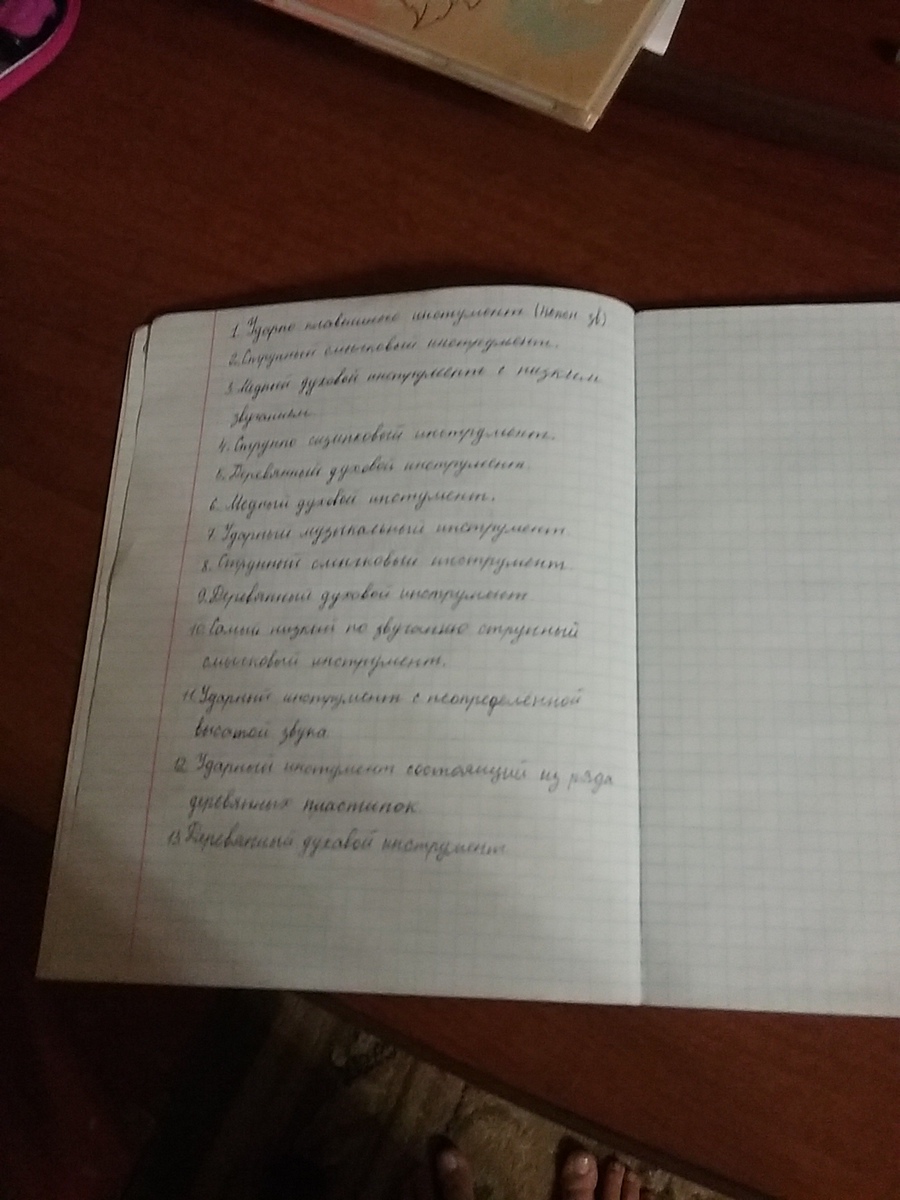 1. Ударно клавишного инстумент
2. Струнный смычковый инструмент.
3. Медный духовой инструменть с низким
звучанием
4. Струнно инструмент.
5. Деревянный духовой инструмент
6. Медный духовой инстумент.
7. Ударный музыкальный инструмент
8. Струнный смычковый инструмент
9. Деревянный духовой инструмент
10. Самый низкий по звучанию струнный
смычковый инструмент.
11. Ударный инструмент с неопределённой
высотой звука
12. Ударный инстумент состоящий из ряда
деревянных пластинок
13. Деревянный духовой инструмент